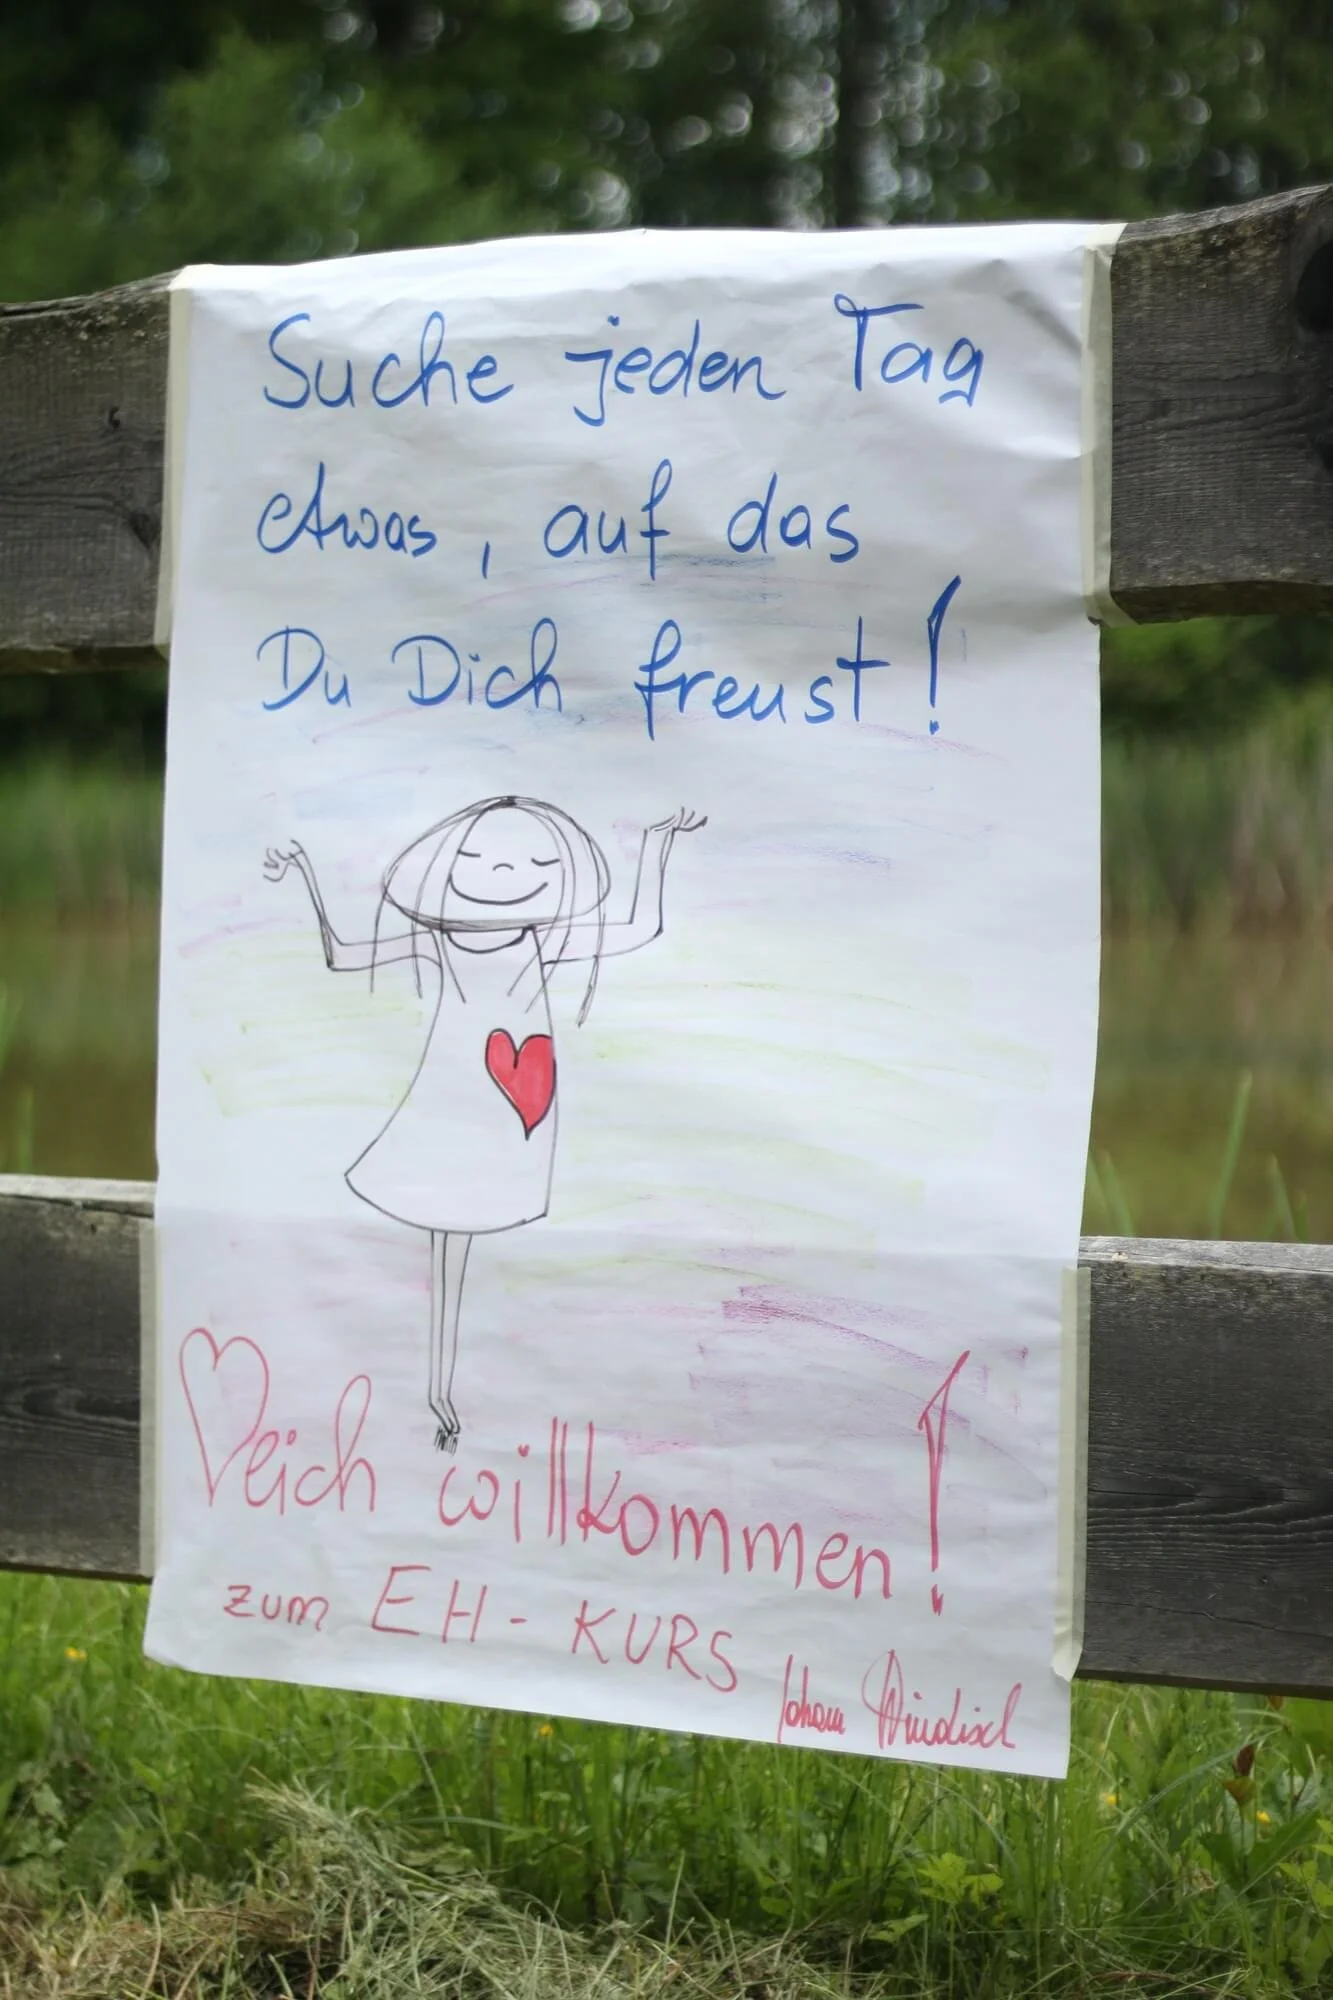 Suche jeden Tag
etwas, auf das
Du Dich freust!
♡eich willkommen!
zum EH-KURS
Johann Windisch